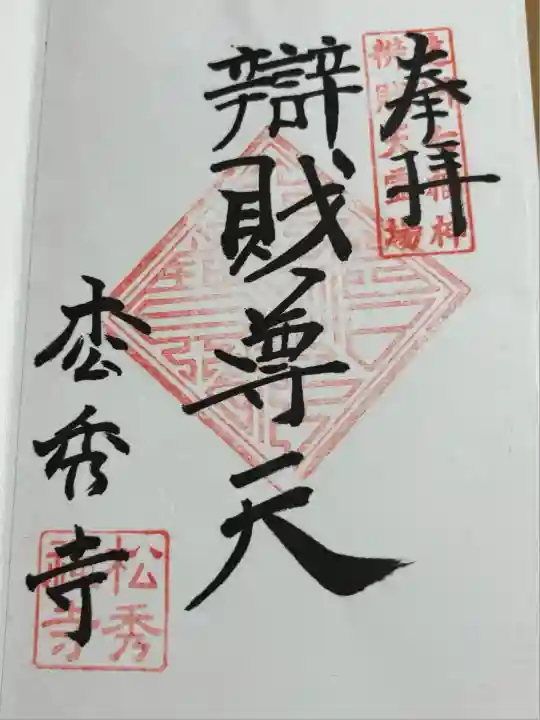 奉拝
辯財尊天
枩秀寺
松秀